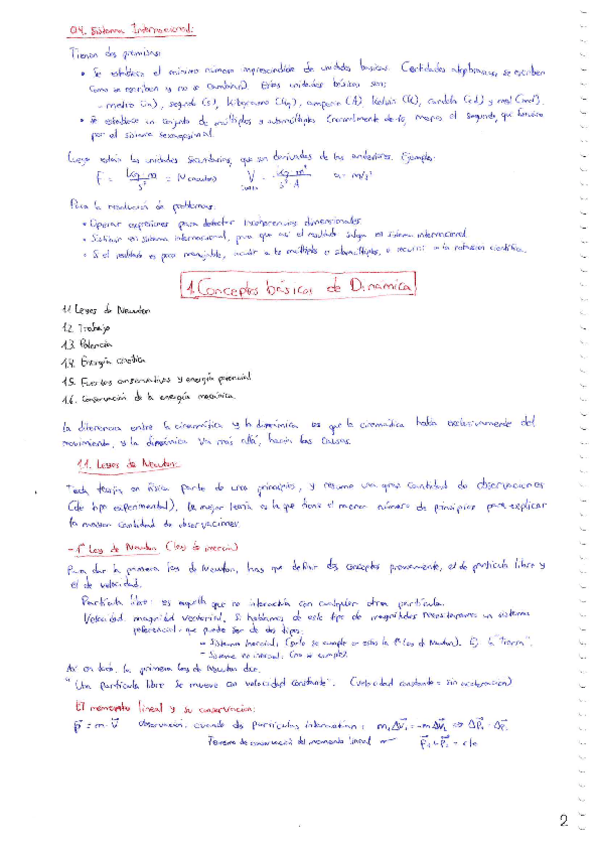 04. Sistema Internacional:
Tienen dos premisas:
• Se establece el mínimo número imprescindible de unidades básicas. Cantidades algebraicas, se escriben
como se escriben y no se cambian). Estas unidades básicas son:
- metro (m), segundo (s), kilogramo (kg), amperio (A) kelvin (K), candela (cd) y mol (mol).
• Se establece un conjunto de múltiplos y submúltiplos (normalmente de 10, menos el segundo, que funciona
por el sistema sexagesimal.
Luego están las unidades secundarias, que son derivadas de las anteriores. Ejemplos:
F = kg·m/s² = N (newton) V = kg·m²/s³·A a = m/s²
Para la resolución de problemas:
• Operar expresiones para detectar incoherencias dimensionales.
• Sustituir en sistema internacional, para que así el resultado salga en sistema internacional
• Si el resultado es poco manejable, acudir a los múltiplos o submúltiplos, o recurrir a la notación científica.
1. Conceptos básicos de Dinámica
1.1 Leyes de Newton
1.2. Trabajo
1.3. Potencia
1.4. Energía cinética
1.5. Fuerzas conservativas y energía potencial
1.6. Conservación de la energía mecánica.
La diferencia entre la cinemática y la dinámica es que la cinemática habla exclusivamente del
movimiento, y la dinámica va más allá, hacia las causas.
1.1. Leyes de Newton:
Toda teoría en física parte de unos principios, y resume una gran cantidad de observaciones
(de tipo experimental). La mejor teoría es la que tiene el menor número de principios para explicar
la mayor cantidad de observaciones.
- 1ª Ley de Newton (ley de inercia)
Para dar la primera ley de Newton, hay que definir dos conceptos previamente, el de partícula libre y
el de velocidad.
Partícula libre: es aquella que no interactúa con cualquier otra partícula.
Velocidad: magnitud vectorial. Si hablamos de este tipo de magnitudes necesitamos un sistema
referencial, que puede ser de dos tipos:
- Sistema inercial: (solo se cumple en estos la 1ª ley de Newton). Ej: la "Tierra".
- Sistema no inercial: (no se cumple).
Así es todo, la primera ley de Newton dice:
"Una partícula libre se mueve con velocidad constante". (velocidad constante = sin aceleración)
El momento lineal y su conservación:
p = m · v Observación: cuando dos partículas interactúan:
Teorema de conservación del momento lineal → p₁ + p₂ = cte
2